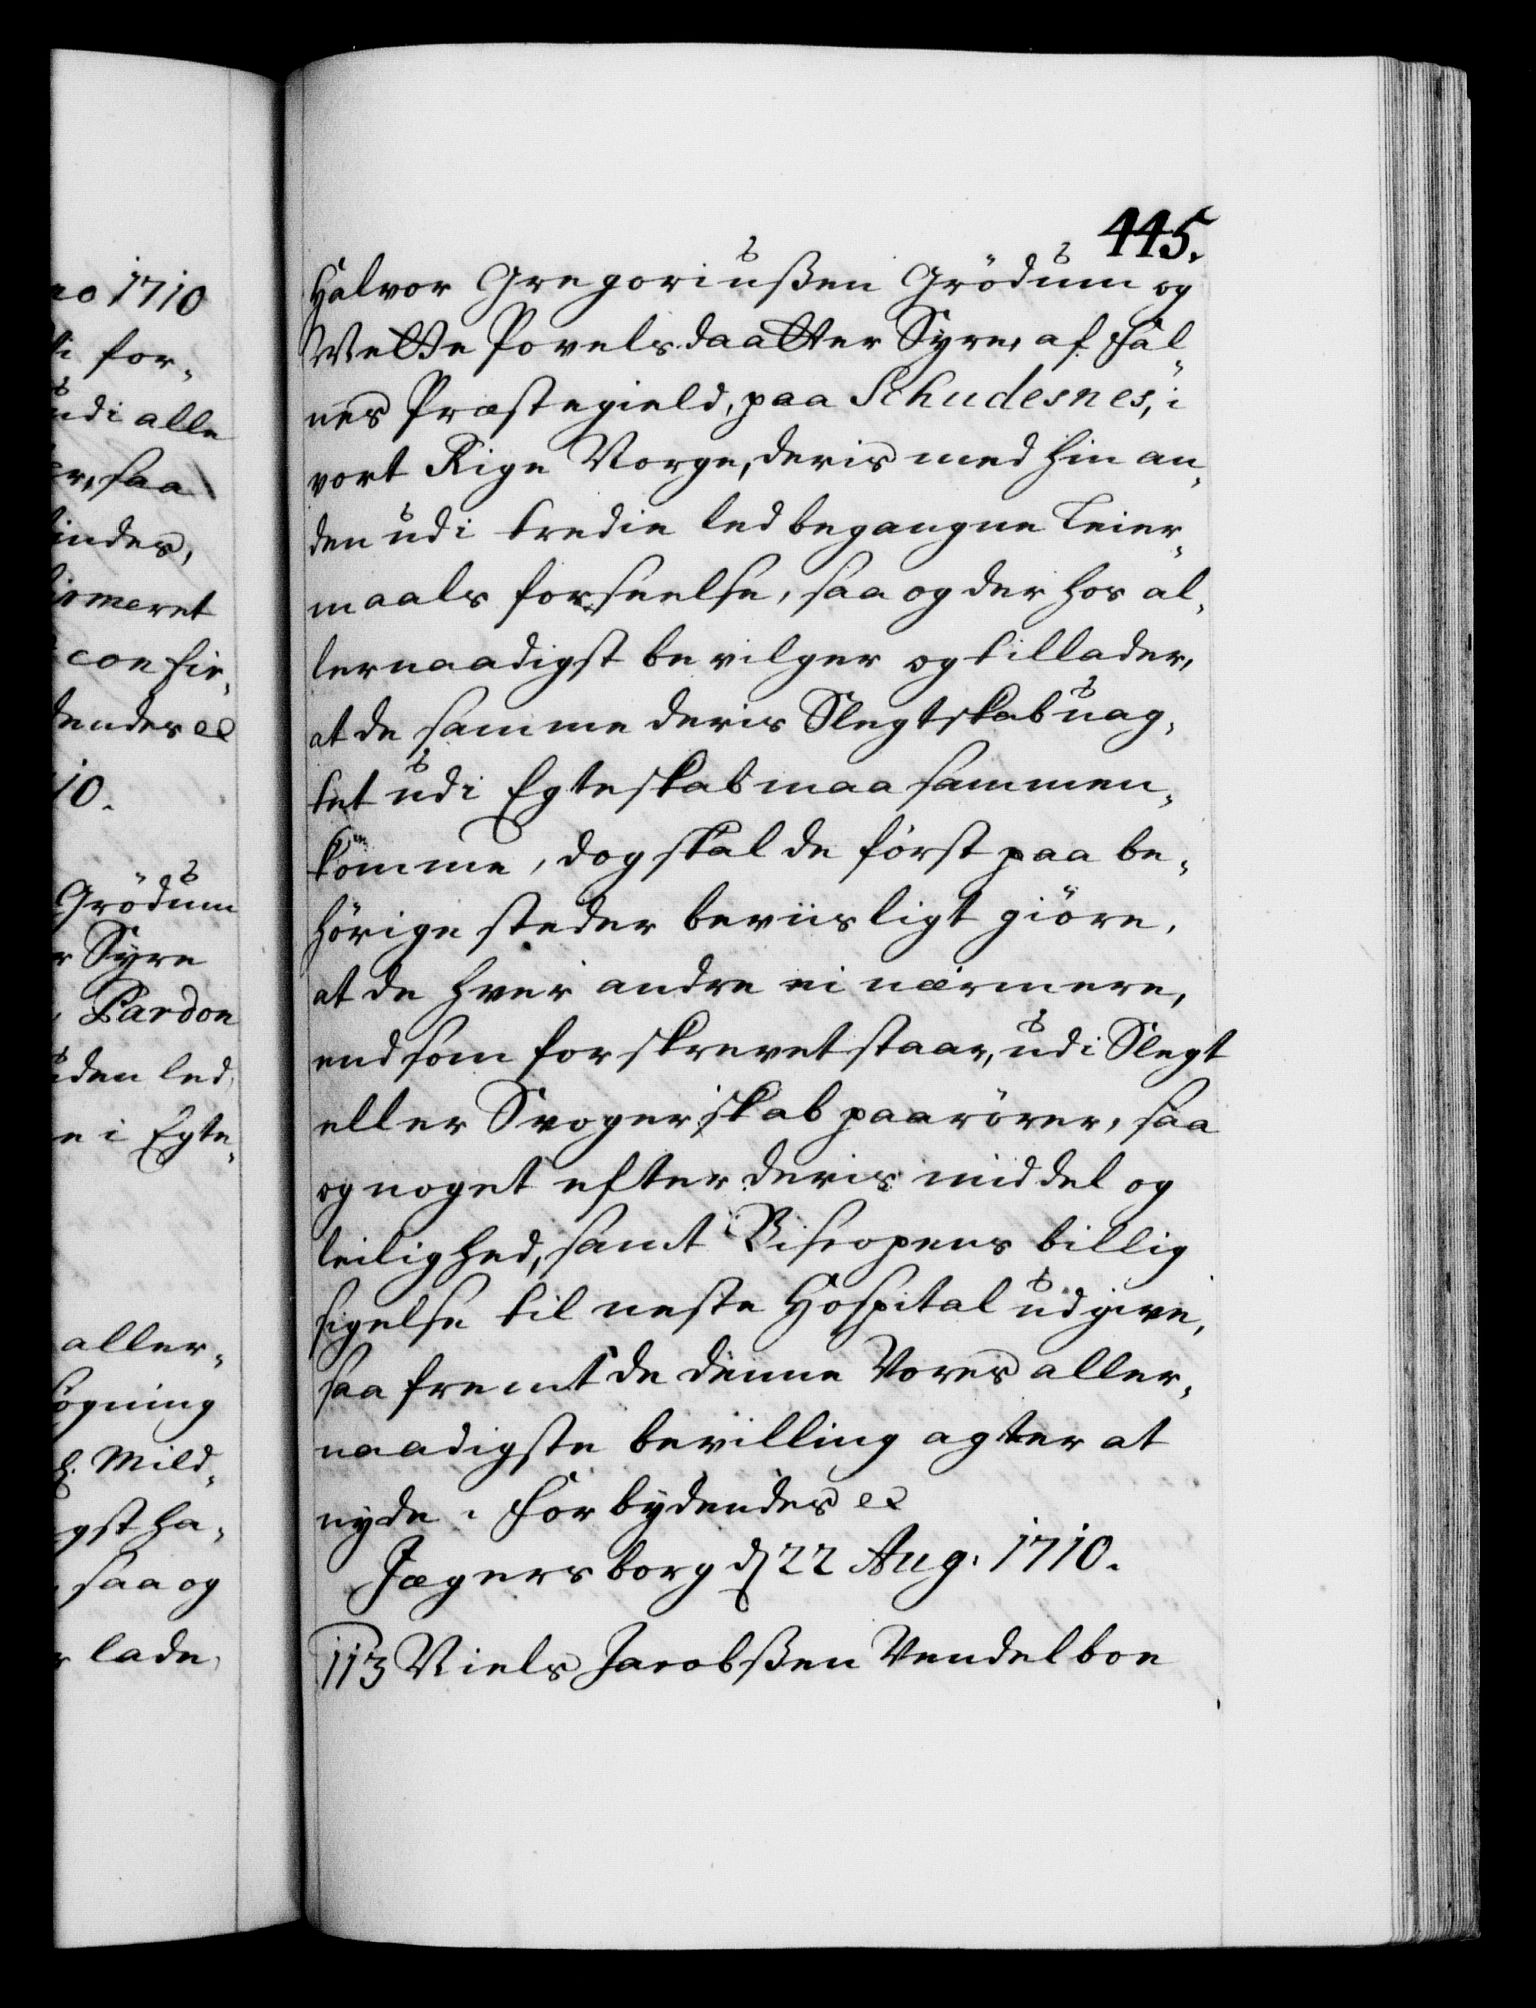 no 1710
for-
udi alle
er, saa
findes,
firmeret
confir-
dendes ee
10.
Grödum
r Syre
Pardon
den led
e i Egte-
aller-
søgning
Mild-
gst ha-
saa og
r lade
445.
Halvor Gregoriußen Grödum og
Mette Povelsdaatter Syre, af Fal-
nes Præstegield, paa Schudesnes, i
vort Rige Norge, deris med hin an-
den udi tredie led begangne Leier-
maals forseelse, saa og der hos al-
lernaadigst bevilger og tillader,
at de samme deris Slegtskab uag-
tet udi Egteskab maa sammen-
komme, dog skal de först paa be-
hörige steder beviisligt giöre,
at de hver andre ei nærmere,
end som forskrevet staar, udi Slegt
eller Svogerskab paarörer, saa
og noget efter deris middel og
leilighed, samt Biscopens billig
sigelse til neste Hospital udgive,
saa fremt de denne Vores aller-
naadigste bevilling agter at
nyde. Forbydendes ee
Jægersborg d 22 Aug. 1710.
113 Niels Jacobßen Vendelboe